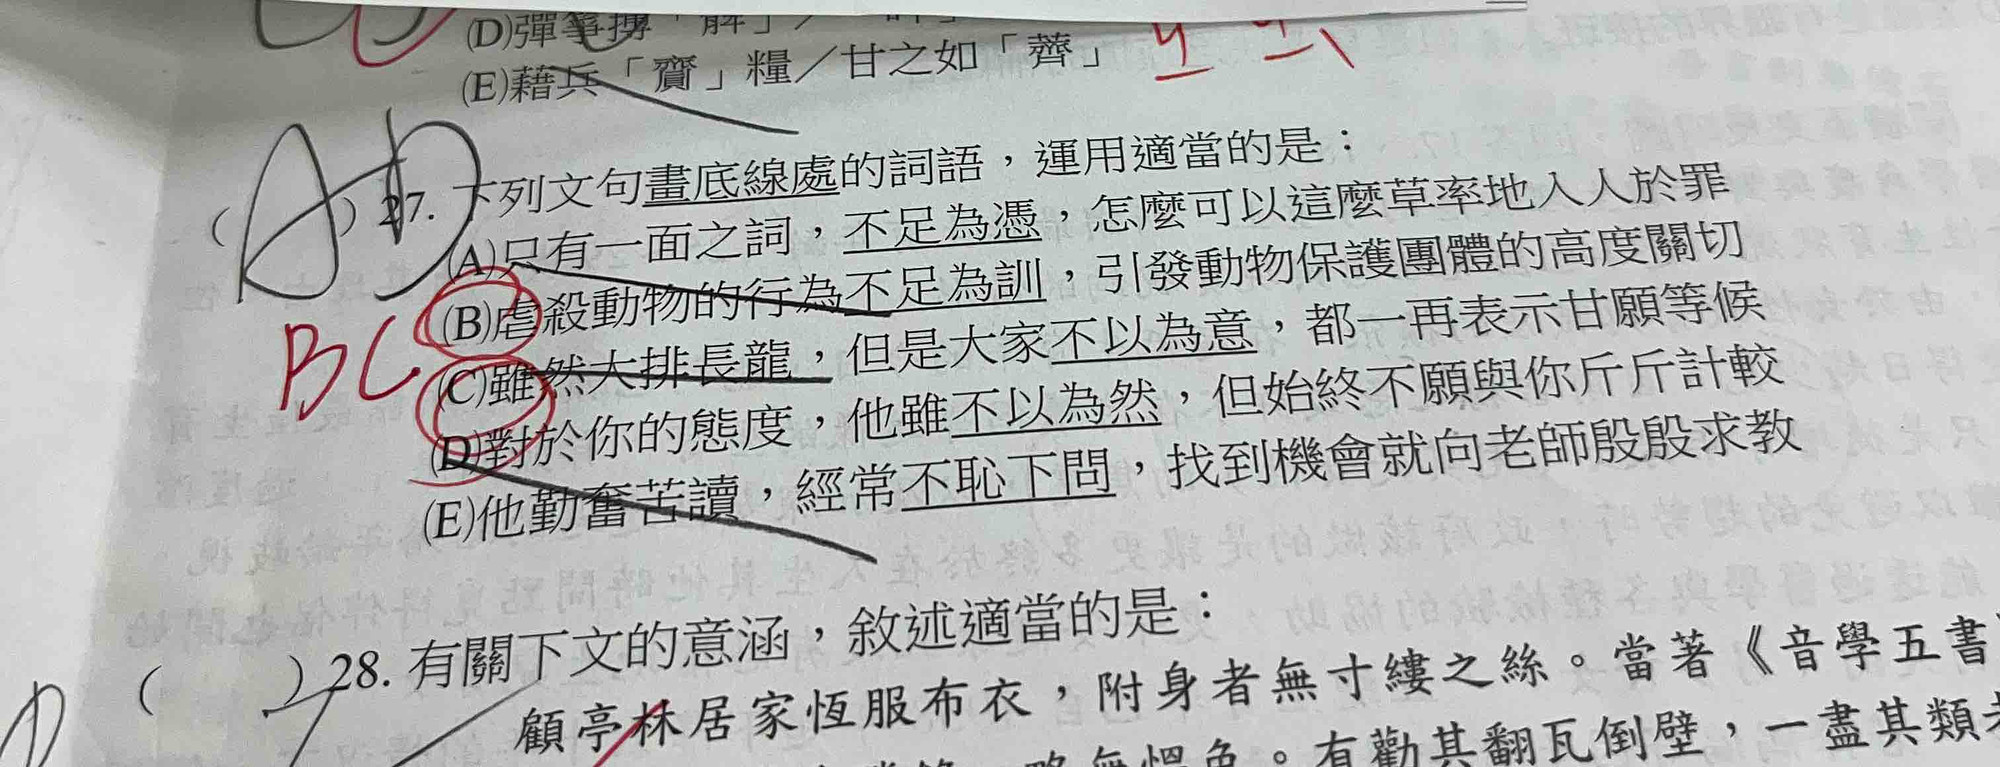 (D)彈箏搏「髀」／
(E)藉兵「齎」糧／甘之如「薺」
AD
( ) 27. 下列文句畫底線處的詞語，運用適當的是：
(A)只有一面之詞，不足為憑，怎麼可以這麼草率地入人於罪
(B)虐殺動物的行為不足為訓，引發動物保護團體的高度關切
BC
(C)雖然大排長龍，但是大家不以為意，都一再表示甘願等候
(D)對於你的態度，他雖不以為然，但始終不願與你斤斤計較
(E)他勤奮苦讀，經常不恥下問，找到機會就向老師殷殷求教
( ) 28. 有關下文的意涵，敘述適當的是：
顧亭林居家恆服布衣，附身者無寸縷之絲。當著《音學五書
略無慍色。有勸其翻瓦倒壁，一盡其類